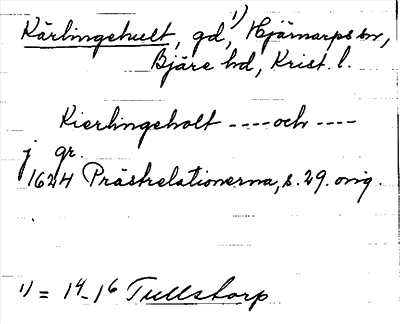 Kärlingehult, gd, 1) Hjärnarps sn,
Bjäre hd, Krist. l.
Kierlingeholt ---- och ----
j gr.
1624 H Prästrelationerna, s. 29. orig.
1) = 14-16 Tullstorp